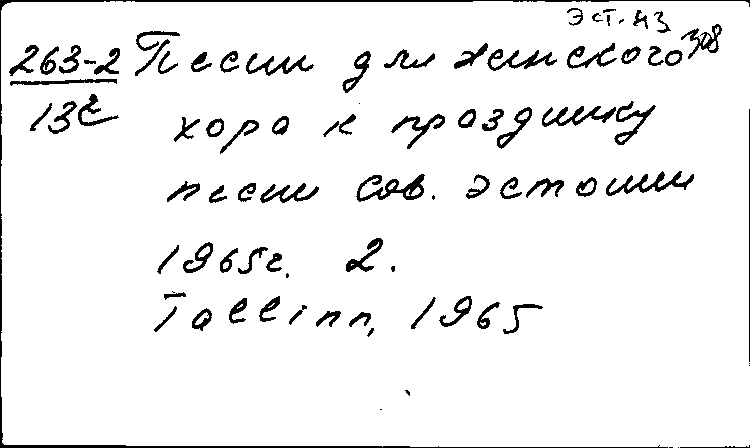 эст. нз
263-2 Песни для женского 308
13г хора к празднику
песни Сов. Эстонии
1965г. 2.
Tallinn, 1965